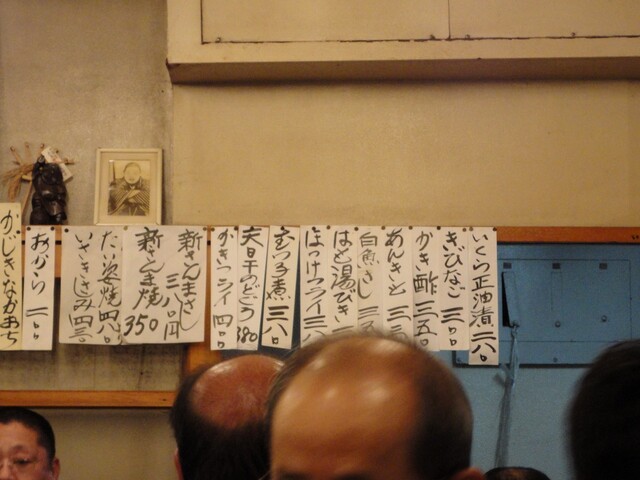 いくら正油漬二八〇
きびなご三〇〇
かき酢三五〇
あんきも三三
白魚さし三
はも湯びき
ほっけフライ三
むつ子煮三八〇
天日干のどぐろ380
かきフライ四〇〇
新さんまさし三八〇円
新さんま焼350
たい姿焼四八〇
いさきさしみ四三〇
おから二〇〇
かじきなかおち